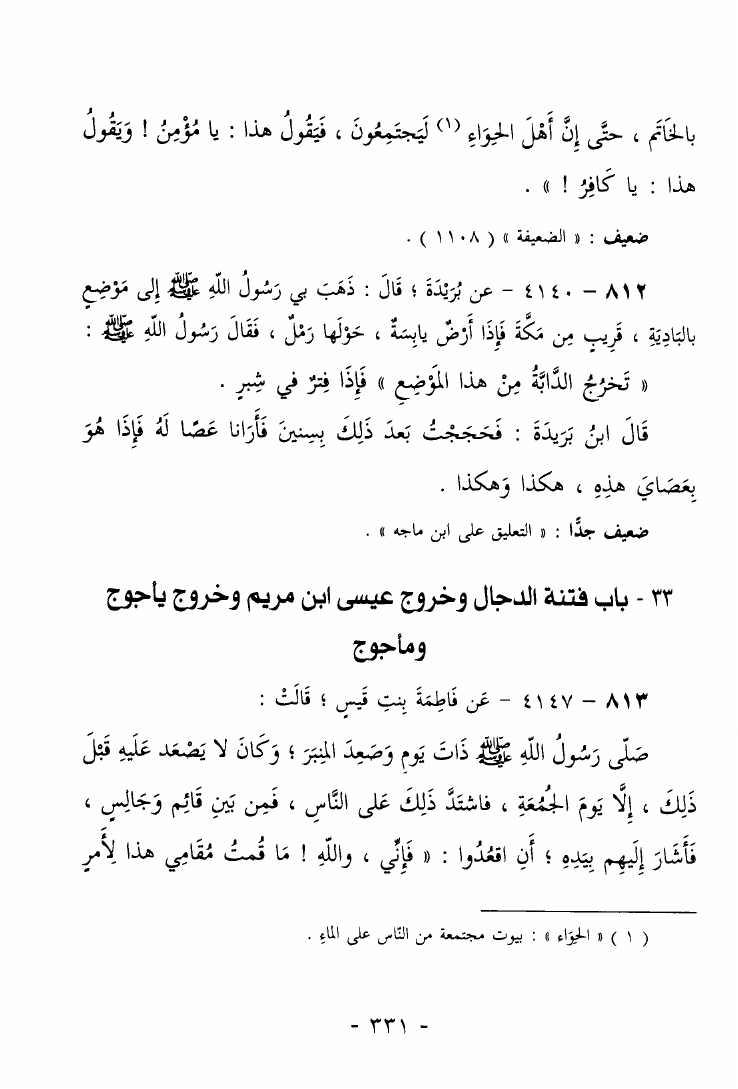 بالخَاتَم ، حتَّى إِنَّ أَهْلَ الحِوَاءِ (١) لَيَجتَمِعُونَ ، فَيَقُولُ هذا : يا مُؤْمِنُ ! وَيَقُولُ
هذا : يا كَافِرُ ! » .
ضعيف : « الضعيفة » ( ١١٠٨ ) .
٨١٢ – ٤١٤٠ – عن بُرَيْدَةَ ؛ قَالَ : ذَهَبَ بي رَسُولُ اللهِ ﷺ إِلى مَوْضِعٍ
بالبَادِيَةِ ، قَرِيبٍ مِن مَكَّةَ فَإِذَا أَرْضٌ يابِسَةٌ ، حَوْلَها رَمْلٌ ، فَقَالَ رَسُولُ اللهِ ﷺ :
« تَخرُجُ الدَّابَّةُ مِنْ هذا المَوْضِعِ » فَإِذَا فِترٌ في شِبرٍ .
قَالَ ابنُ بَرَيدَةَ : فَحَجَجْتُ بَعدَ ذَلِكَ بِسنينَ فَأَرَانا عَصًا لَهُ فَإِذَا هُوَ
بِعَصَايَ هذِهِ ، هكذا وَهكذا .
ضعيف جدًّا : « التعليق على ابن ماجه » .
٣٣ - باب فتنة الدجال وخروج عيسى ابن مريم وخروج يأجوج
ومأجوج
٨١٣ – ٤١٤٧ – عَن فَاطِمَةَ بِنتِ قَيسٍ ؛ قَالَتْ :
صَلّى رَسُولُ اللهِ ﷺ ذَاتَ يَومٍ وَصَعِدَ المِنبَرَ ؛ وَكَانَ لا يَصْعَد عَلَيهِ قَبْلَ
ذَلِكَ ، إِلَّا يَومَ الجُمُعَةِ ، فاشتَدَّ ذَلِكَ عَلى النَّاسِ ، فَمِن بَينِ قَائِم وَجَالِسٍ ،
فَأَشَارَ إِلَيهِم بِيَدِهِ ؛ أَنِ اقعُدُوا : « فَإِنِّي ، واللهِ ! مَا قُمتُ مُقَامِي هذا لِأَمرٍ
( ١ ) « الحِوَاء » : بيوت مجتمعة من النّاس على الماءِ .
- ٣٣١ -